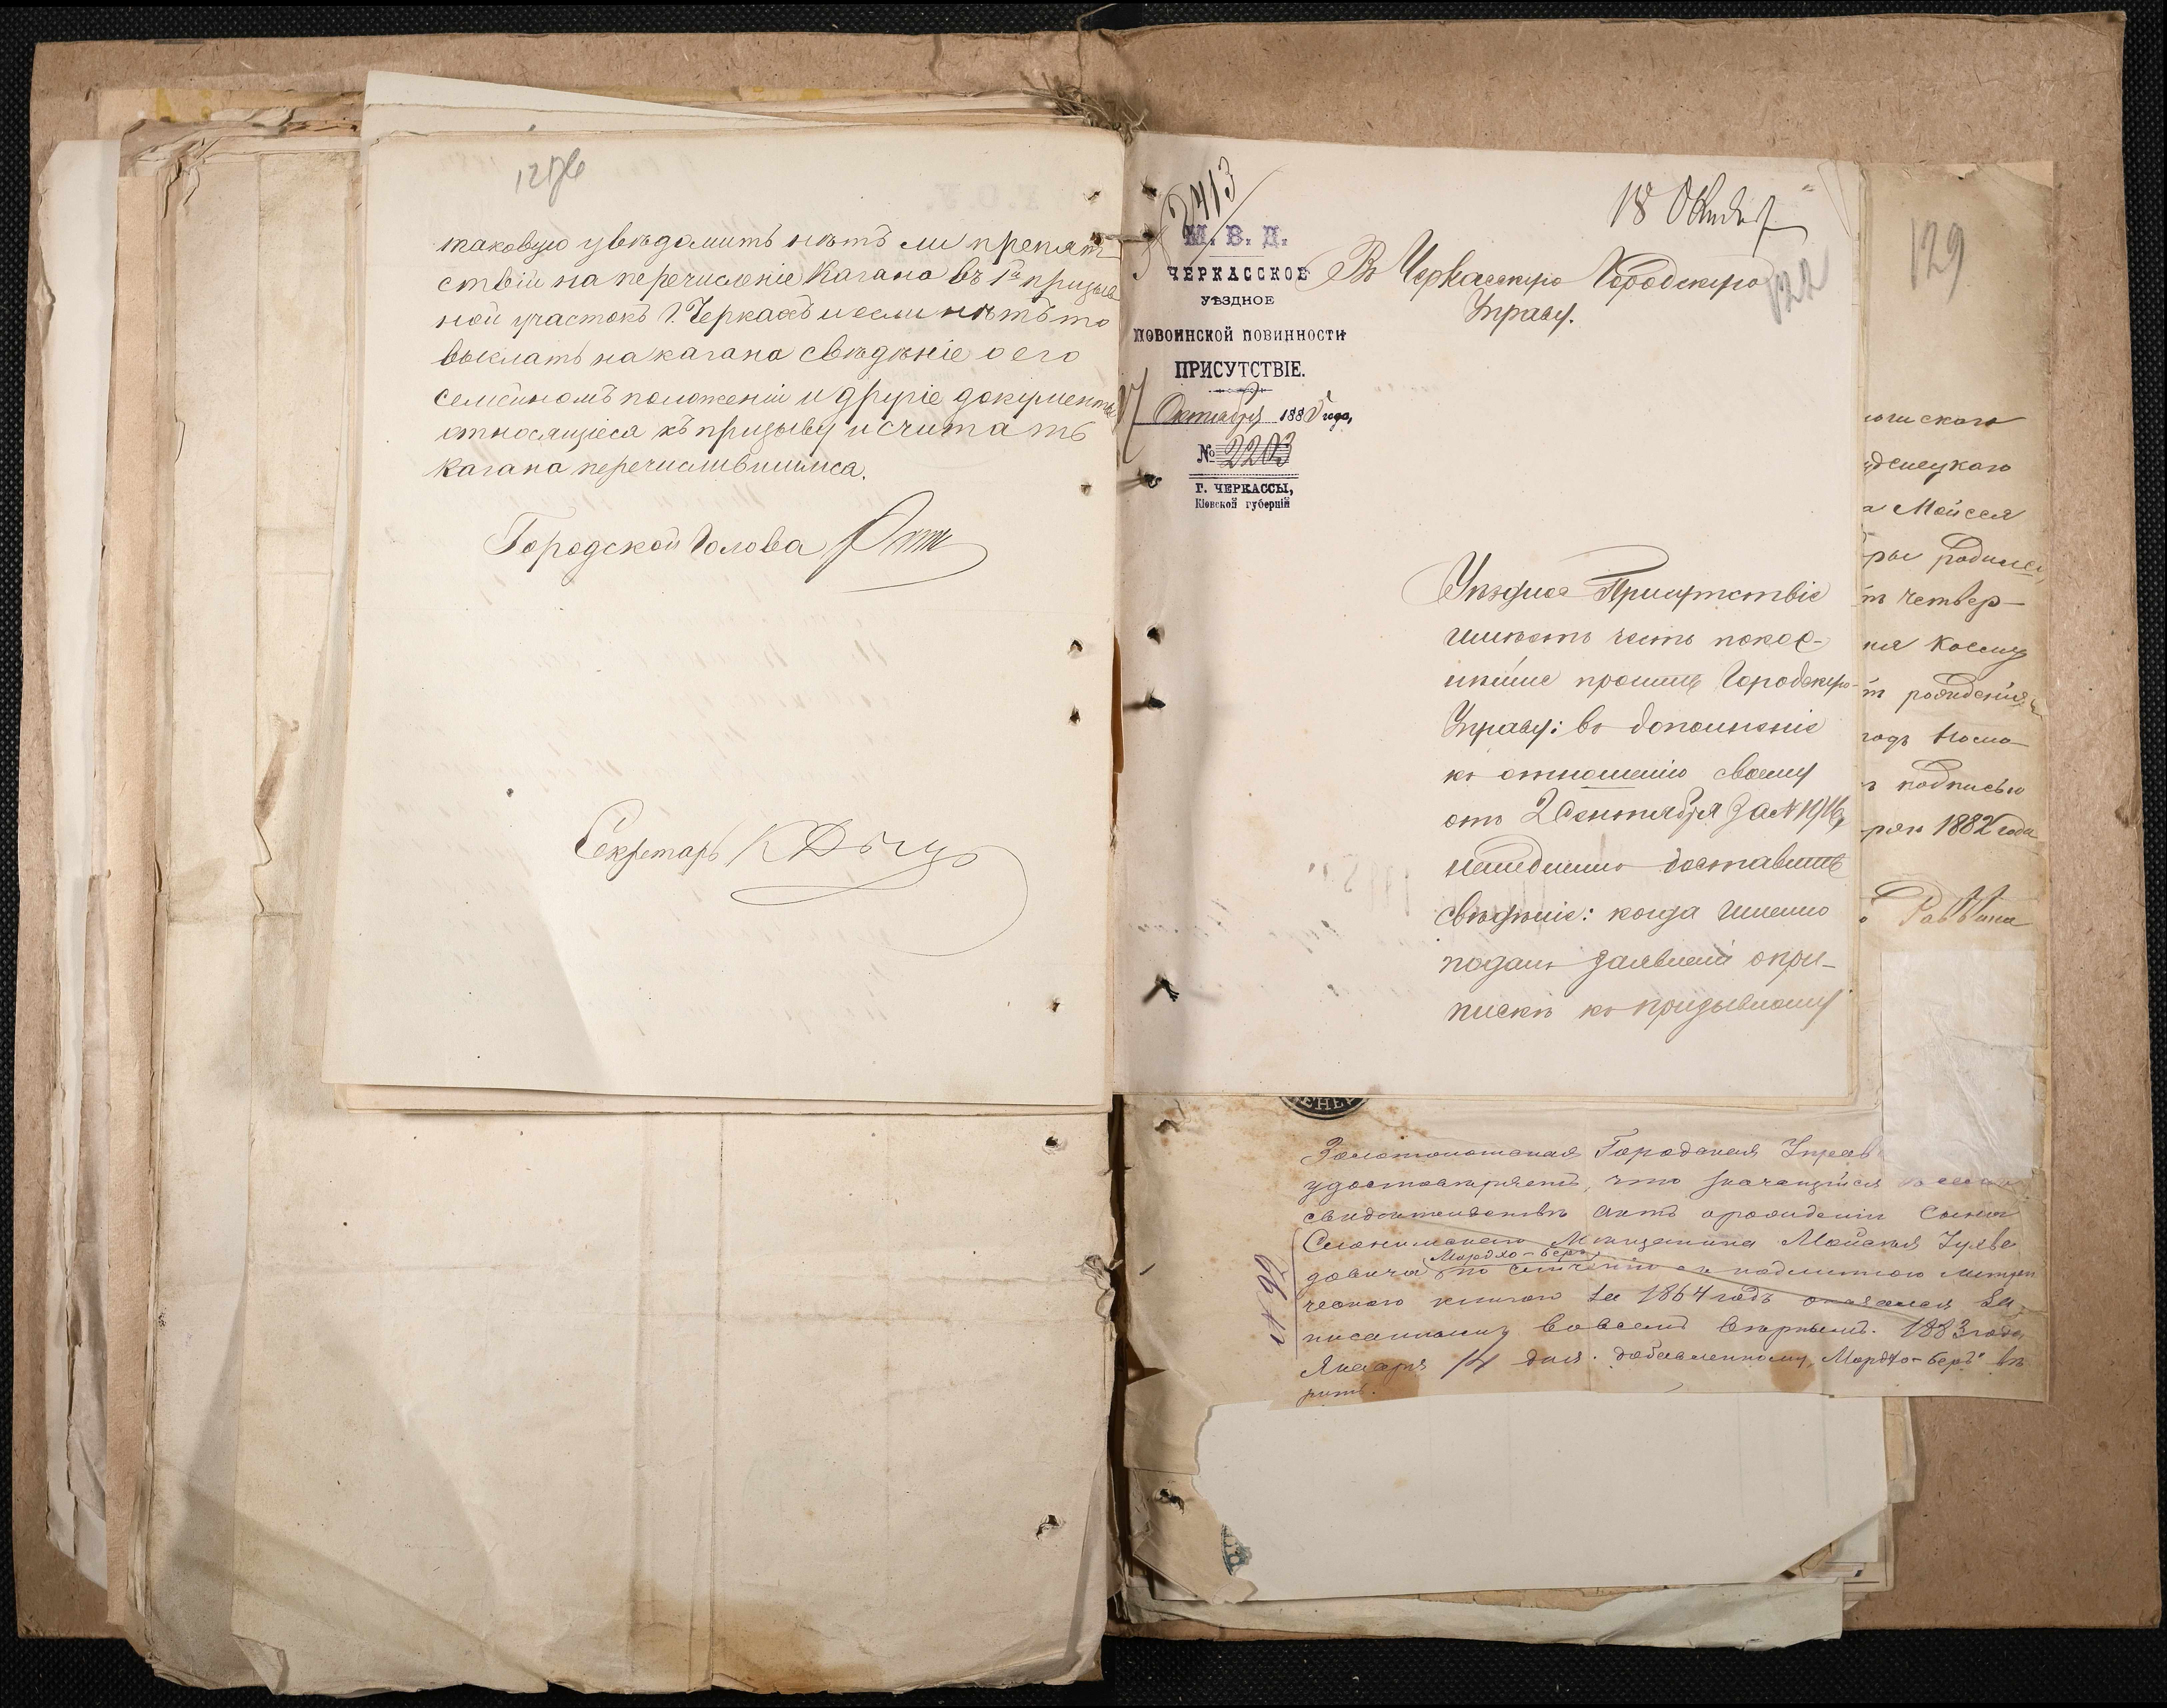 таковую увѣдомить нѣтъ ли препят-
ствій на перечисленіе Кагана въ 1й призыв
ной участокъ г. Черкасъ и если нѣтъ то
выслать на кагана свѣдѣніе о его
семейномъ положеніи и другіе документы
относящіеся къ призыву и считать
Кагана перечислившимся.
Городской Голова
Секретарь
2413
М. В. Д.
ЧЕРКАССКОЕ
УѢЗДНОЕ
ПОВОИНСКОЙ ПОВИННОСТИ
ПРИСУТСТВІЕ.
17 Октября 1885 года,
№ 2203
Г. ЧЕРКАССЫ,
Кіевской губерніи
18 Октяб
122
Въ Черкасскую Городскую
Управу.
Уѣздное Присутствіе
имѣетъ честь покор-
нѣйше просить Городскую
Управу: въ дополненіе
къ отношенію своему
отъ 2 Сентября за №
доставить
свѣдѣніе: когда именно
подано заявленіе о при-
пискѣ къ призывному
129
а Мойсея
ры родился
тъ четвер-
т рожденія
годъ
подписью
1882 года
Раввина
Золотоношская Городская Управ
удостовѣряетъ, что значащійся
свидѣтельствѣ актъ о рожденіи сына
Слонимскаго Мѣщанина Мойсея
довича Мордхо-Беръ по сличенію съ подлинною метри
ческою книгою за 1864 годъ оказался за
писаннымъ во всемъ вѣрнымъ. 1883 года
Января 14 дня. добавленному "Мордхо-Беръ" вѣ
рить.